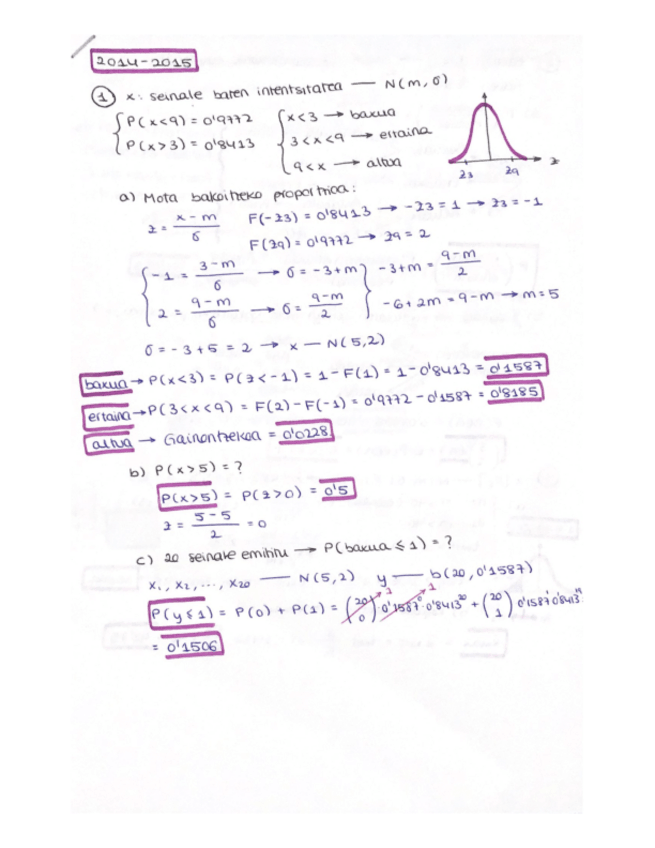 2014-2015
① x: seinale baten intentsitatea — N(m, σ)
P(x<9) = 0'9772
P(x>3) = 0'8413
x<3 → baxua
3<x<9 → ertaina
9<x → altua
z
z3 z9
a) Mota bakoitzeko proportzioa:
z = (x-m)/σ F(-z3) = 0'8413 → -z3 = 1 → z3 = -1
F(z9) = 0'9772 → z9 = 2
-1 = (3-m)/σ → σ = -3+m
2 = (9-m)/σ → σ = (9-m)/2
-3+m = (9-m)/2
-6+2m = 9-m → m=5
σ = -3+5 = 2 → x — N(5,2)
baxua → P(x<3) = P(z<-1) = 1-F(1) = 1-0'8413 = 0'1587
ertaina → P(3<x<9) = F(2)-F(-1) = 0'9772-0'1587 = 0'8185
altua → Gainontzekoa = 0'0228
b) P(x>5) = ?
P(x>5) = P(z>0) = 0'5
z = (5-5)/2 = 0
c) 20 seinale emititu → P(baxua ≤ 1) = ?
x1, x2, ..., x20 — N(5,2) y — b(20, 0'1587)
P(y≤1) = P(0) + P(1) = (20 0)·0'1587⁰·0'8413²⁰ + (20 1) 0'1587¹·0'8413¹⁹
1 1
= 0'1506